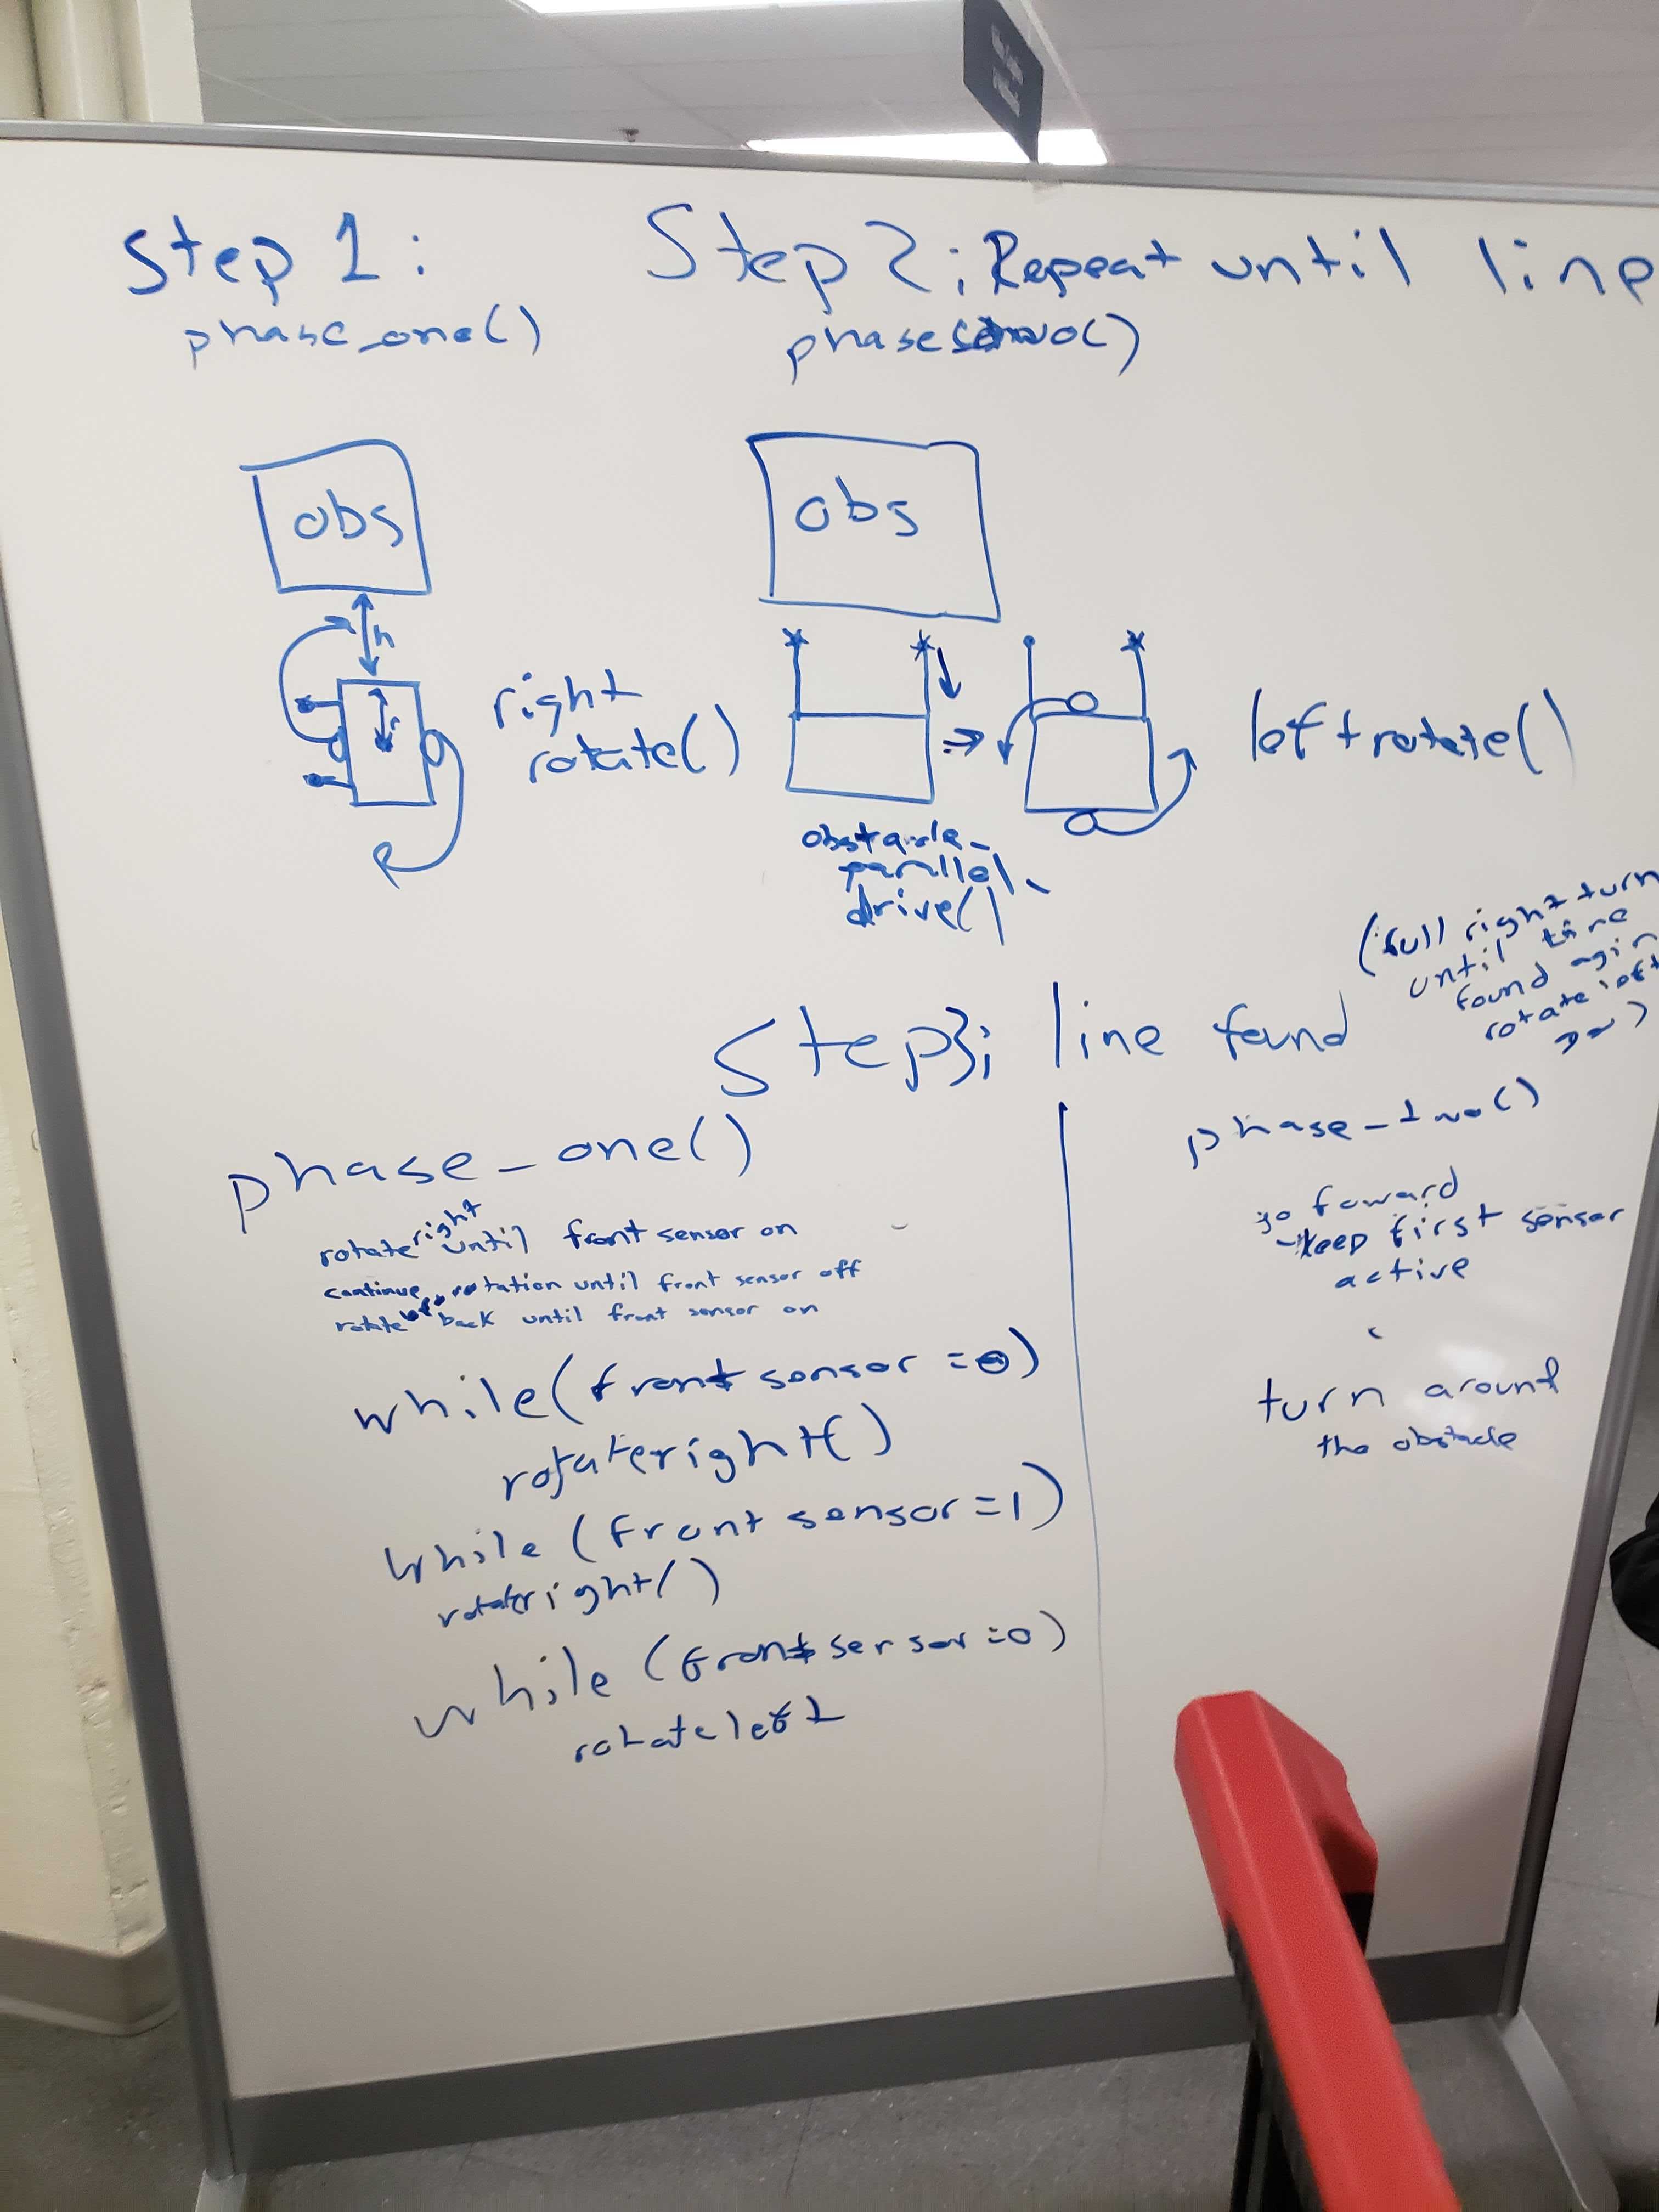 Step 1:
phase_one()
Step 2; Repeat until line
phase two()
obs
h
r
right
rotate()
obs
obstacle_
parallel_
drive()
left rotate()
Step 3; line found
(full right turn
until line
found agin
rotate left
phase_one()
rotate right until front sensor on
continue rotation until front sensor off
rotate left back until front sensor on
while(front sensor =0)
rotateright()
while (front sensor=1)
rotateright()
while (front sensor=0)
rotateleft
phase_two()
go foward
-keep first sensor
active
turn around
the obstacle